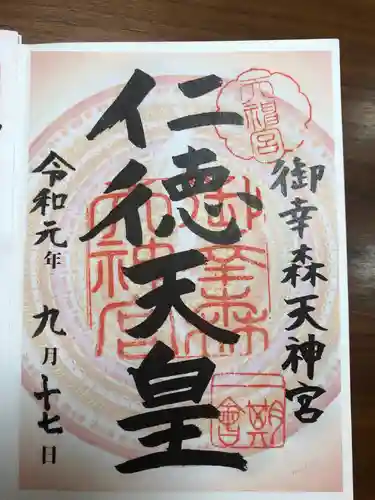 御幸森天神宮
仁徳天皇
令和元年 九月十七日
天神宮
御幸森
天神宮
一期
一會